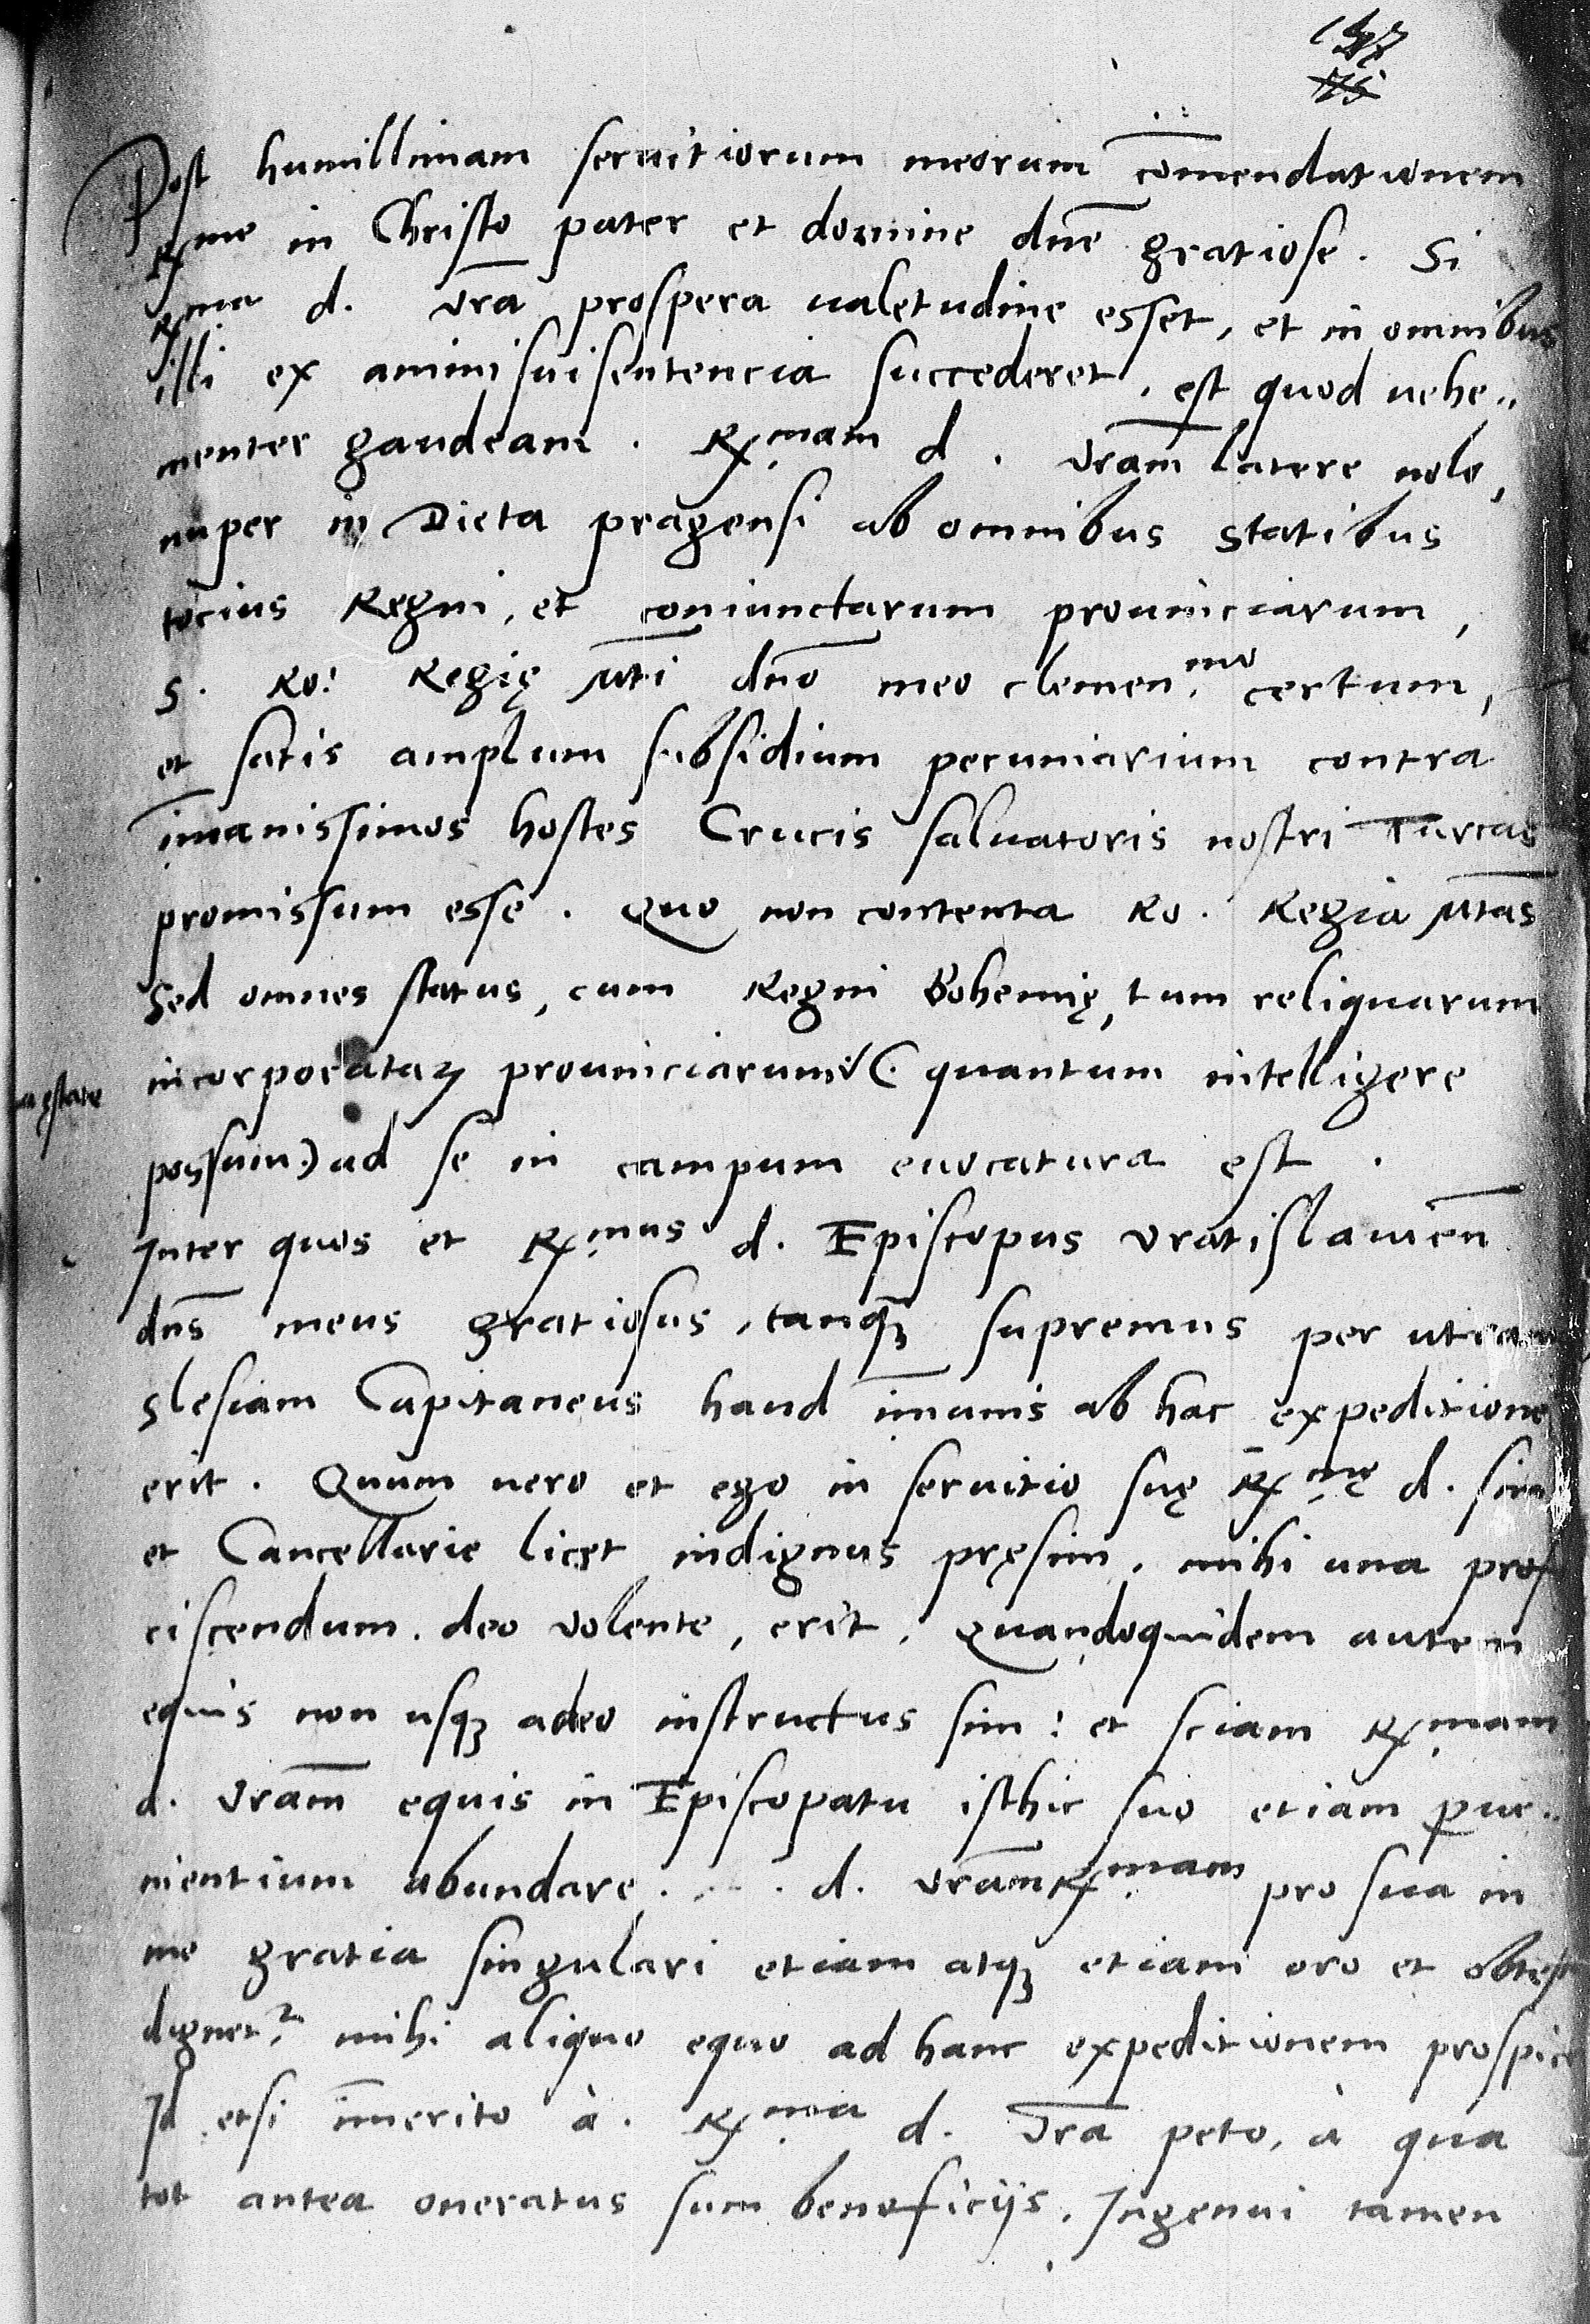 Post humillimam seruitiorum meorum com̄endationem
Rx^me in Christo pater et domine dn̄e gratiose. Si
Rx^ma d. vr̄a prospera ualetudine esset, et in omnibus
illi ex animi sui sentencia succederet, est quod uehe„
menter gaudeam. Rx^mam d. vr̄am latere nolo,
nuper in Dieta pragensi ab omnibus statibus
tocius Regni, et coniunctarum prouinciarum,
S. Ro: Regię Mti dn̄o meo clemen.^mo certum,
et satis amplum subsidium pecuniarium contra
im̄anissimos hostes Crucis saluatoris nostri Turcas
promissum esse. Quo non contenta Ro. Regia Mtas
Sed omnes status, cum Regni Bohemię, tum reliquarum
incorporataꝝ prouinciarum (quantum intelligere
possum) ad se in campum euocatura est.
Inter quos et Rx^mus d. Episcopus Vratislauien̄
dn̄s meus gratiosus, tanqꝫ supremus per utram
Slesiam Capitaneus haud im̄unis ab hac expeditione
erit. Quum uero et ego in seruitio suę Rx^mę d. sim
et Cancellarie licet indignus pręsim, mihi una prof
ciscendum, deo volente, erit. Quandoquidem autem
equis non usqꝫ adeo instructus sim: et sciam Rx^mam
d. Vram̄ equis in Episcopatu isthic suo etiam
nientium abundare. d. vram̄ Rx^mam pro sua in
me gratia singulari etiam atqꝫ etiam oro et obtes
dignet^r mihi aliquo equo ad hanc expeditionem prospice
Id etsi im̄erito à. Rx^ma d. Vr̄a peto, à qua
tot antea oneratus sum beneficijs. Ingenui tamen